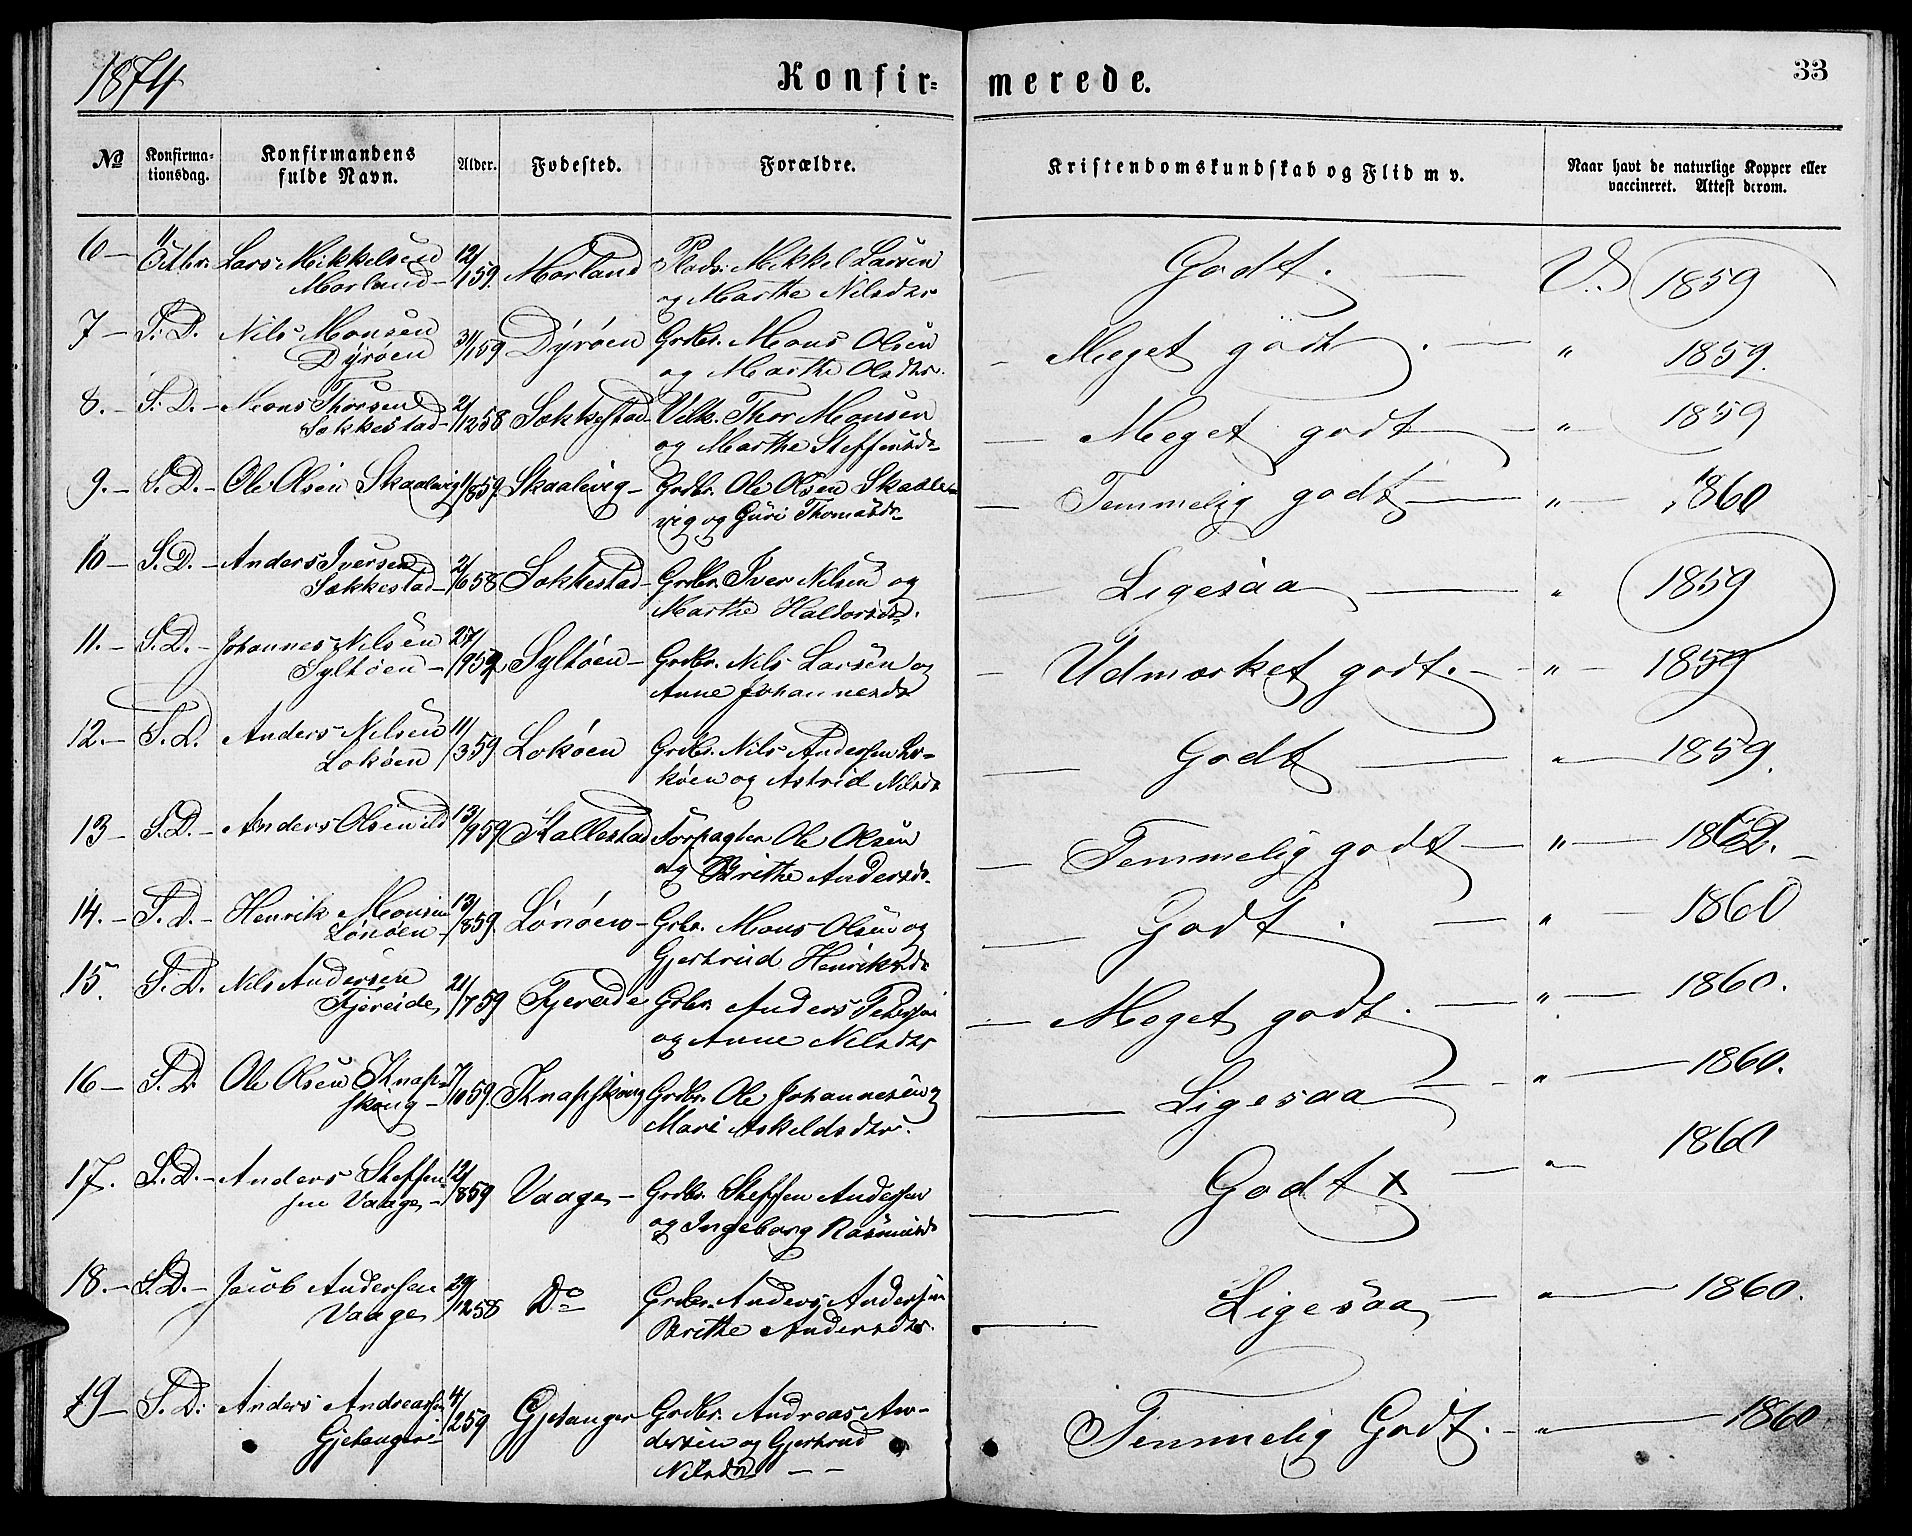 1874
Konfir= merede.
33
No
Konfirma-
tionsdag.
Konfirmandens
fulde Navn.
Alder.
Fodested.
Forældre.
Kristendomskundskab og Flid m v.
Naar havt de naturlige Kopper eller
vaccineret. Attest derom.
6 – Lars Mikkelsen 12/1 59 Morland Plads. Mikkel Larsen Godt. – V. 1859
Morland – og Marthe Nilsdtr
7 – S. D. Nils Monsen 31/1 59 Dyröen Grdbr. Mons Olsen – Meget godt. – " 1859.
Dyröen og Marthe Olsdtr.
8. – S. D. – Mons Thorsen 2/12 58 Sækkestad Vilk. Thor Monsen – Meget godt – " 1859
Sækkestad – og Marthe Steffensd
9. – S. D. – Ole Olsen Skaalevig 1/8 59 Skaalevig – Grdbr. Ole Olsen Skaale= – Temmelig godt – " – 1860
vig og Guri Thomasd
10 – S. D. – Anders Iversen 2/6 58 Sækkestad – Grdbr. Iver Nilsen og – Ligesaa – " 1859
Sækkestad – Marthe Haldorsd.
11. – S. D. – Johannes Nilsen 27/9 59 Syltöen – Grdbr. Nils Larsen og – Udmærket godt. – " – 1859
Syltöen – Anne Johannesd
12. – S. D. Anders Nilsen 11/3 59 Loköen Grdbr. Nils Andersen Lo= – Godt – " 1859.
Loköen köen og Astrid Nilsd
13 – S. D. – Anders Olsen 13/9 59 Kallestad Forpagter Ole Olsen – Temmelig godt – " – 1862. –
og Brithe Andersd
14. – S. D. – Henrik Monsen 13/8 59 Lönöen – Grbr. Mons Olsen og – Godt. – " – 1860
Lönöen – Gjertrud Henriksd
15. S. D. Nils Andersen 21/7 59 Fjereide Grbr. Anders Petersen – Meget godt. – " – 1860.
Fjereide og Anne Nilsdtr
16 – S. D. Ole Olsen Knap= 7/10 59. Knapskong Grdbr. Ole Johannesen og – Ligesaa – " – 1860.
skong – Mari Askeldsdtr.
17. S. D. – Anders Steffen= 12/8 59 Vaage – Grdbr. Steffen Andersen – Godt x – " 1860
sen Vaage – og Ingeborg Rasmusd
18. – S. D. – Jacob Andersen 29/12 58 Do Grdbr. Anders Andersen – Ligesaa – " – 1860.
Vaage Brithe Andersdtr.
19 – S. D. Anders Andreassen 4/2 59 Gjetanger Grdbr. Andreas An= Temmelig Godt. – " – 1860
Gjetanger – dersen og Gjertrud
Nilsd – –